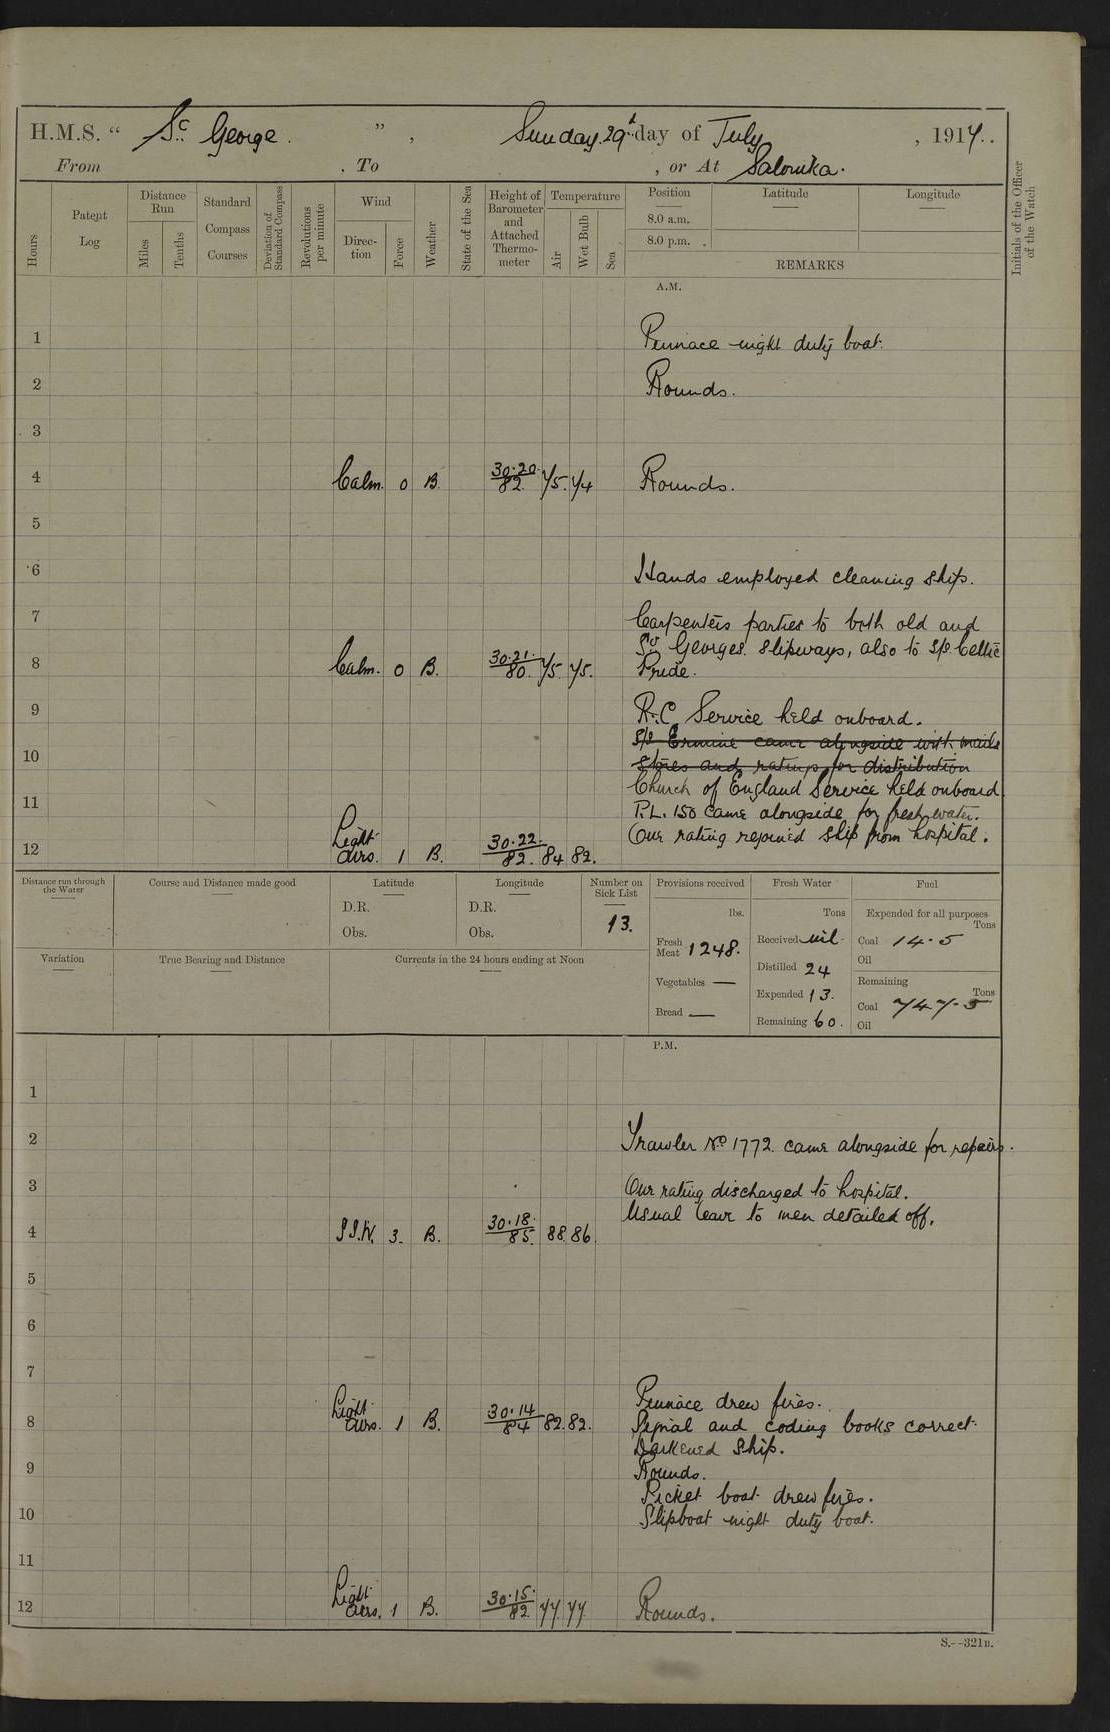 H.M.S. “ St George. ” , Sunday. 29th day of July , 1917.
From . To , or At Salonika.
Hours
Patent Log
Distance Run
Miles
Tenths
Standard Compass Courses
Deviation of Standard Compass
Revolutions per minute
Wind
Direction
Force
Weather
State of the Sea
Height of Barometer and Attached Thermometer
Temperature
Air
Wet Bulb
Sea
Position
8.0 a.m.
8.0 p.m.
Latitude
Longitude
REMARKS
Initials of the Officer of the Watch
A.M.
1 Pinnace night duty boat.
2 Rounds.
3
4 Calm. 0 B. 30.20 82. 75. 74 Rounds.
5
6 Hands employed cleaning ship.
7 Carpenters parties to both old and
St Georges. slipways, also to S/S Celtic
8 Calm. 0 B. 30.21. 80. 75. 75. Pride.
9 R.C. Service held onboard.
S/S Ermine came alongside with mails
10 stores and ratings for distribution
Church of England Service held onboard.
11 P.L. 150 came alongside for fresh water.
12 Light airs. 1 B. 30.22. 82. 84 82. One rating rejoined ship from hospital.
Distance run through the Water
Course and Distance made good
Latitude
D.R.
Obs.
Longitude
D.R.
Obs.
Number on Sick List
13.
Provisions received
lbs.
Fresh Meat 1248.
Vegetables —
Bread —
Fresh Water
Tons
Received nil
Distilled 24
Expended 13.
Remaining 60.
Fuel
Expended for all purposes
Tons
Coal 14.5
Oil
Remaining
Tons
Coal 747.5
Oil
Variation
True Bearing and Distance
Currents in the 24 hours ending at Noon
P.M.
1
2 Trawler No 1772. came alongside for repairs.
3 One rating discharged to hospital.
Usual leave to men detailed off.
4 S.S.W. 3. B. 30.18. 85. 88. 86.
5
6
7
Pinnace drew fires.
8 Light airs. 1 B. 30.14 84 82. 82. Signal and coding books correct.
Darkened ship.
9 Rounds.
Picket boat drew fires.
10 Slipboat night duty boat.
11
12 Light airs. 1 B. 30.15. 82 77 77 Rounds.
S.--321B.